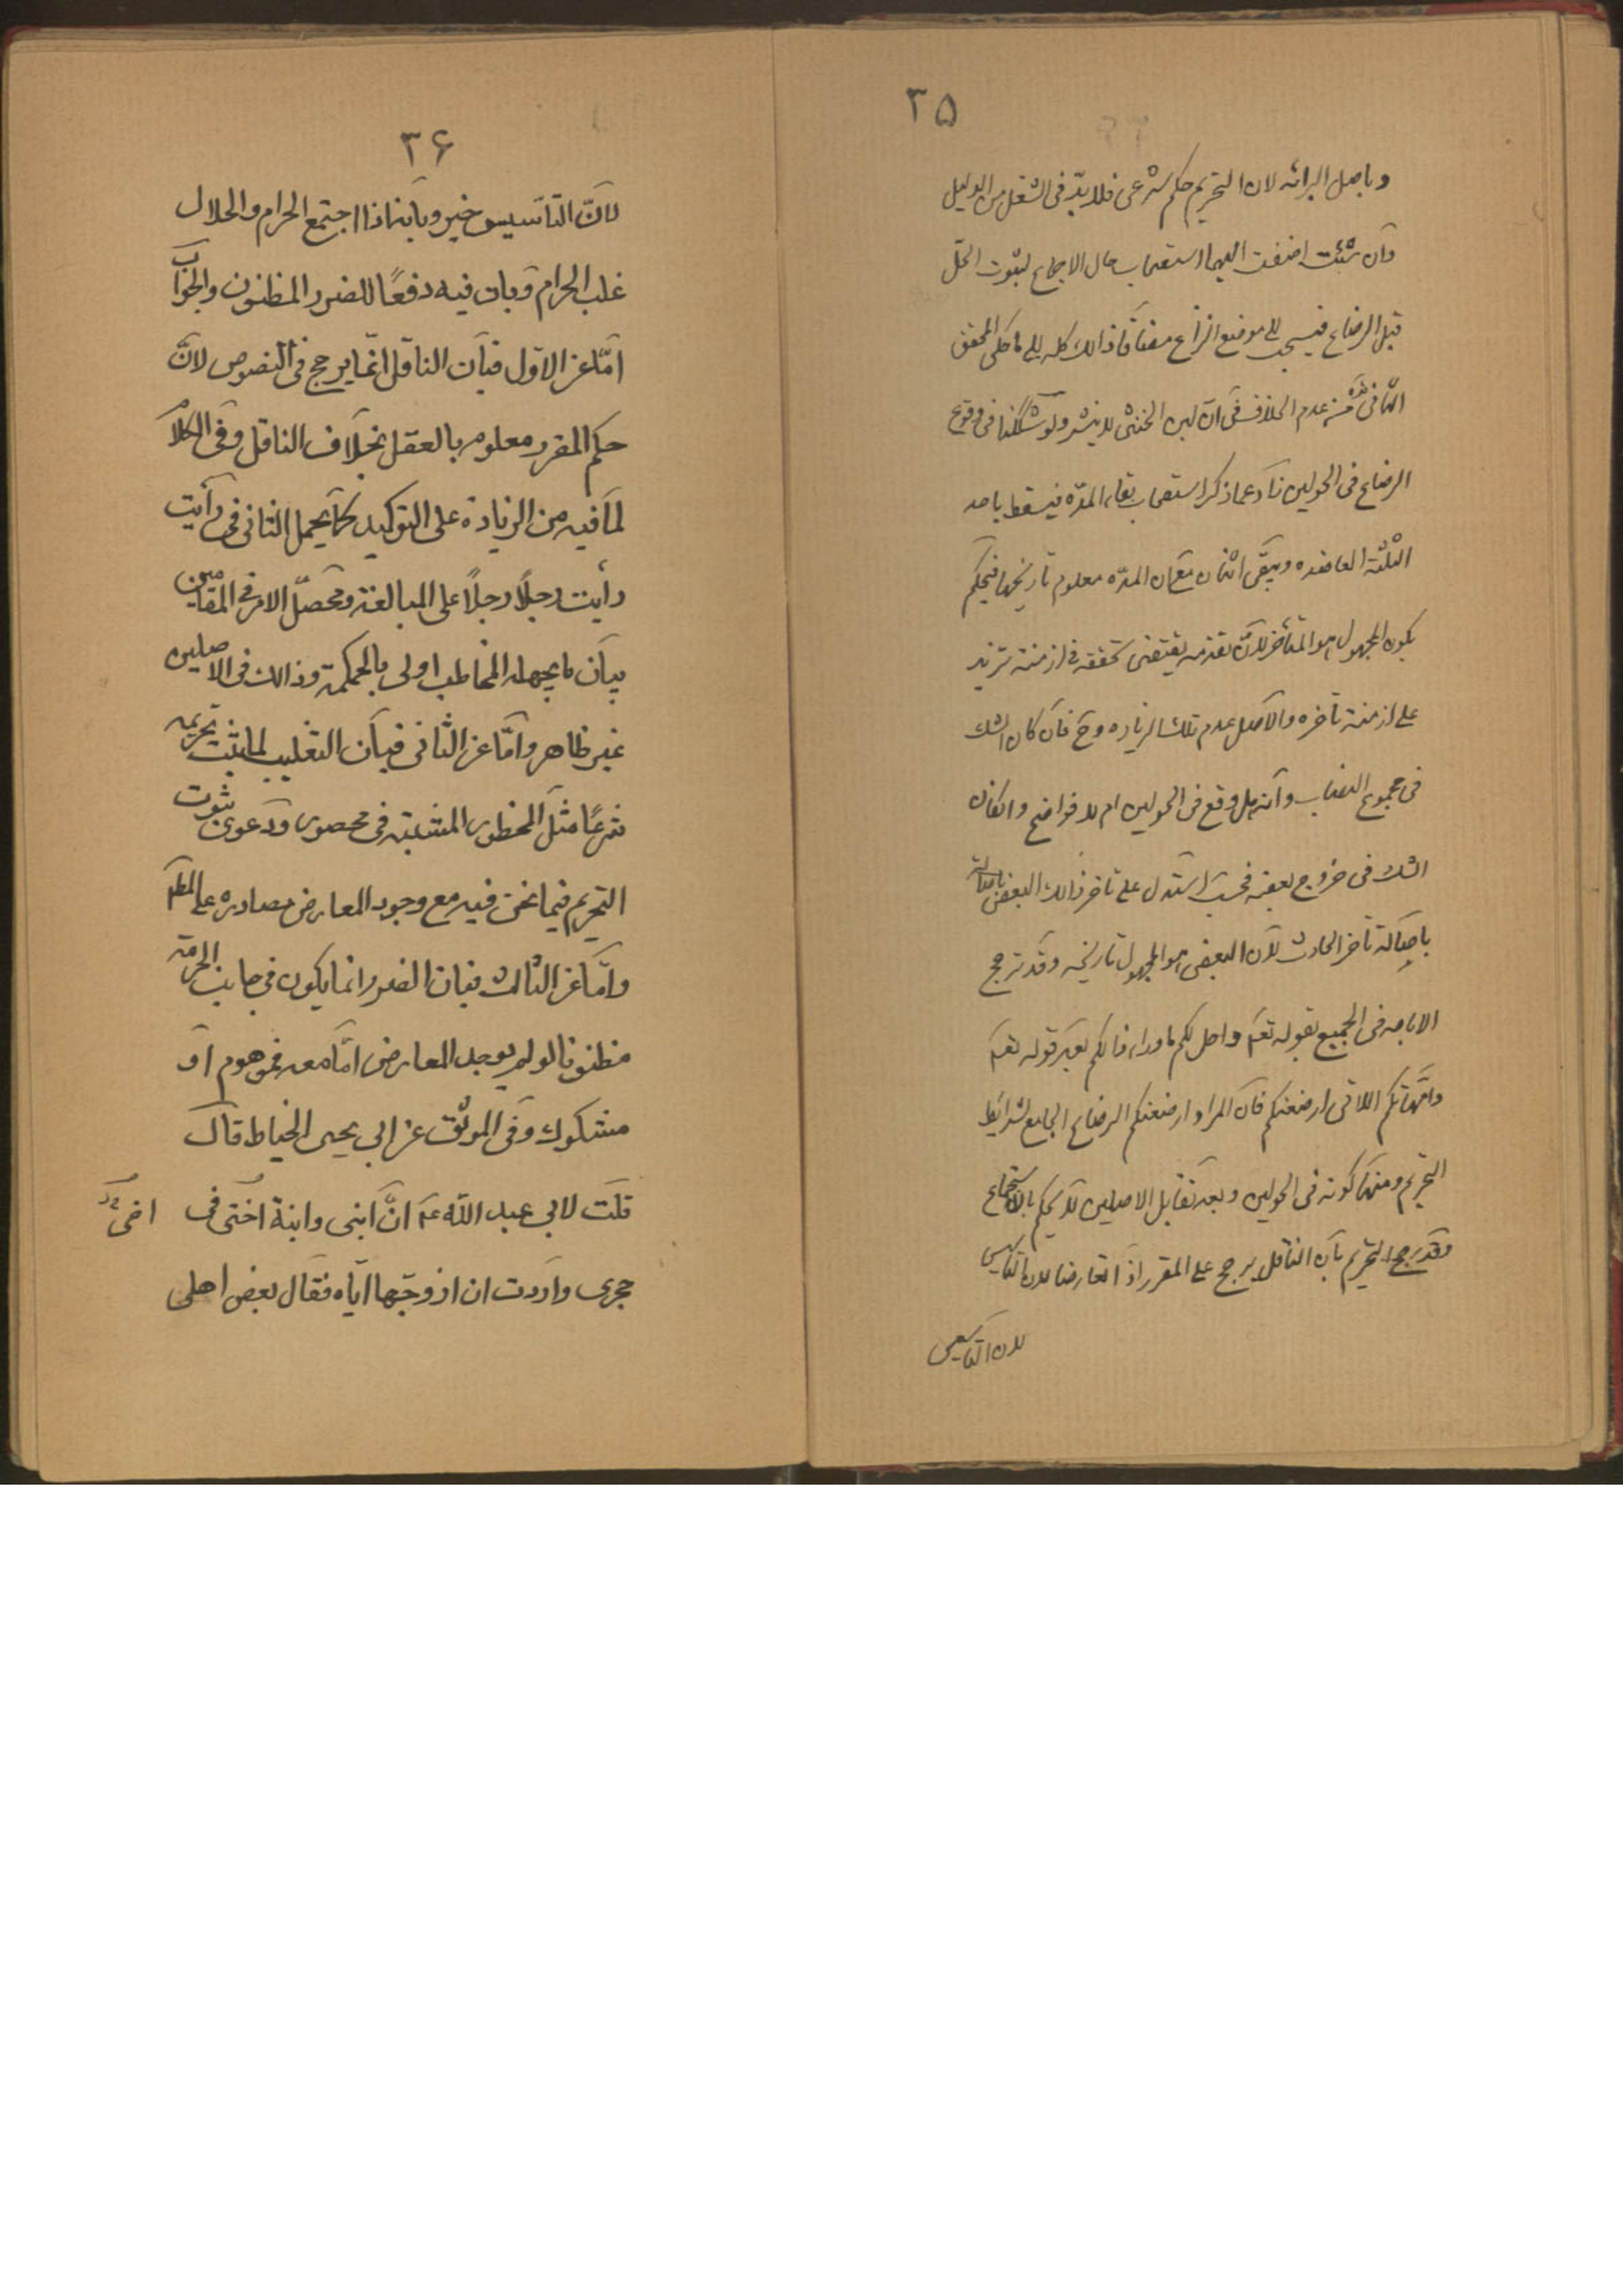 ٣۵
وباصل البرائه لان التحريم حكم شرعى فلا بدّ فى الشغل من الدليل
وان شئت اضفت اليهما استصحاب حال الاجماع لثبوت الحلّ
قبل الرضاع فيستحب الى موضع النزاع مضافا ذالك كله الى ما حكى المحقق
الثانى من عدم الخلاف فى ان لبن الخنثى لا ينشر ولو شككنا فى وقوع
الرضاع فى الحولين زاد عما ذكر استصحاب بقاء المدّه فيسقط باحد
الثلثة العاضده ويبقى اثنان مع ان المدّه معلوم تاريخها فيحكم
بكون المجهول هو المتأخر لان تقدمه يقتضى تحققه فى ازمنة تزيد
على ازمنة تأخره والاصل عدم تلك الزياده وح فان كان الشك
فى مجموع النصاب وانه هل وقع فى الحولين ام لا فواضح وان كان
الشك فى خروج بعضه فحسب استدل على تاخر ذالك البعض
باصالة تاخر الحادث لان البعض هو المجهول تاريخه وقد ترجح
الاباحه فى الجميع بقوله تعم واحل لكم ما وراء ذالكم بعد قوله تعم
وامّهاتكم اللاتى ارضعنكم فان المراد ارضعنكم الرضاع الجامع لشرائط
التحريم ومنها كونه فى الحولين وبعد تقابل الاصلين لا يحكم بالاستجماع
وقد يرجح التحريم بان الناقل يرجح على المقرر اذا تعارضا لان التأسيس
لان التأسيس
٣۶
لانّ التأسيس خير وبانه اذا اجتمع الحرام والحلال
غلب الحرام وبان فيه دفعًا للضرر المظنون والجواب
امّا عن الاوّل فبان الناقل انّما يرجح فى النصوص لانّ
حكم المقرر معلوم بالعقل بخلاف الناقل وفى الكلام
لما فيه من الزيادة على التوكيد كما يحمل الثانى فى رأيت
رأيت رجلًا رجلًا على المبالغة ومحصّل الامر فى المقامين
بيان ما يجهله المخاطب اولى بالحكمة وذالك فى الاصلين
غير ظاهر وامّا عن الثانى فبان التغليب لما يثبت تحريمه
شرعًا مثل المحظور المشتبه فى محصور ودعوى ثبوت
التحريم فيما نحن فيه مع وجود المعارض مصادره على المطم
وامّا عن الثالث فبان الضرر انما يكون فى جانب الحرمة
مظنونا لو لم يوجد المعارض امّا معه فموهوم او
مشكوك وفى الموثق عن ابى يحيى الخياط قال
قلت لابى عبد الله عم انّ ابنى وابنة اختى فى اخى
حجرى واردت ان ازوّجها ايّاه فقال بعض اهلى